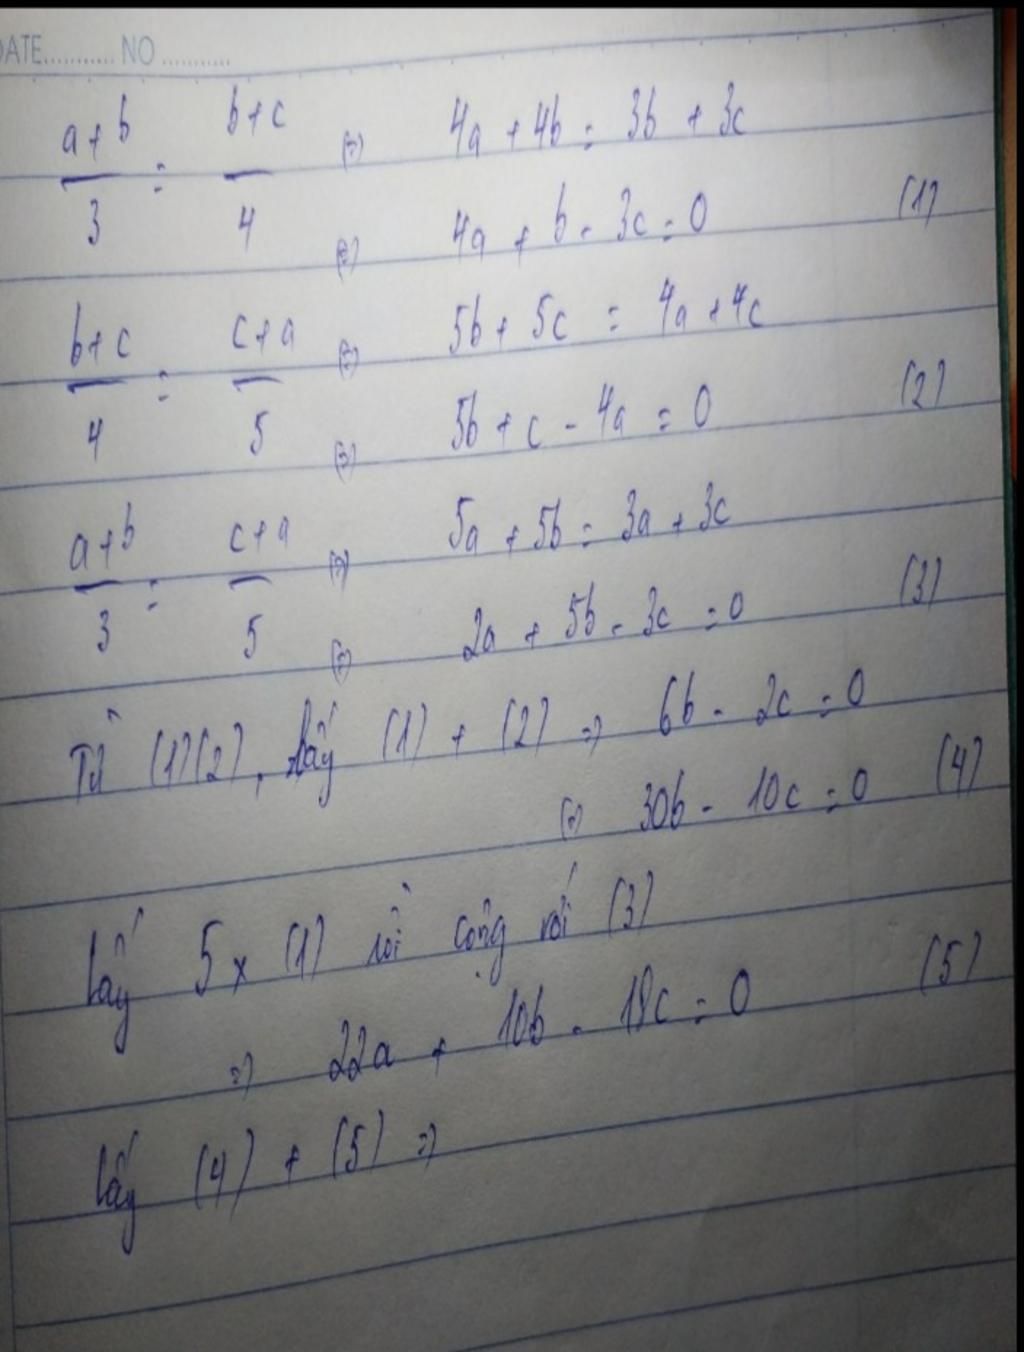 DATE........... NO ...........
a+b/3 = b+c/4 (=) 4a + 4b = 3b + 3c
(=) 4a + b - 3c = 0 (1)
b+c/4 = c+a/5 (=) 5b + 5c = 4a + 4c
(=) 5b + c - 4a = 0 (2)
a+b/3 = c+a/5 (=) 5a + 5b = 3a + 3c
(=) 2a + 5b - 3c = 0 (3)
Từ (1)(2), lấy (1) + (2) =) 6b - 2c = 0
(=) 30b - 10c = 0 (4)
lấy 5 x (1) rồi cộng với (3)
=) 22a + 10b - 18c = 0 (5)
lấy (4) + (5) =)